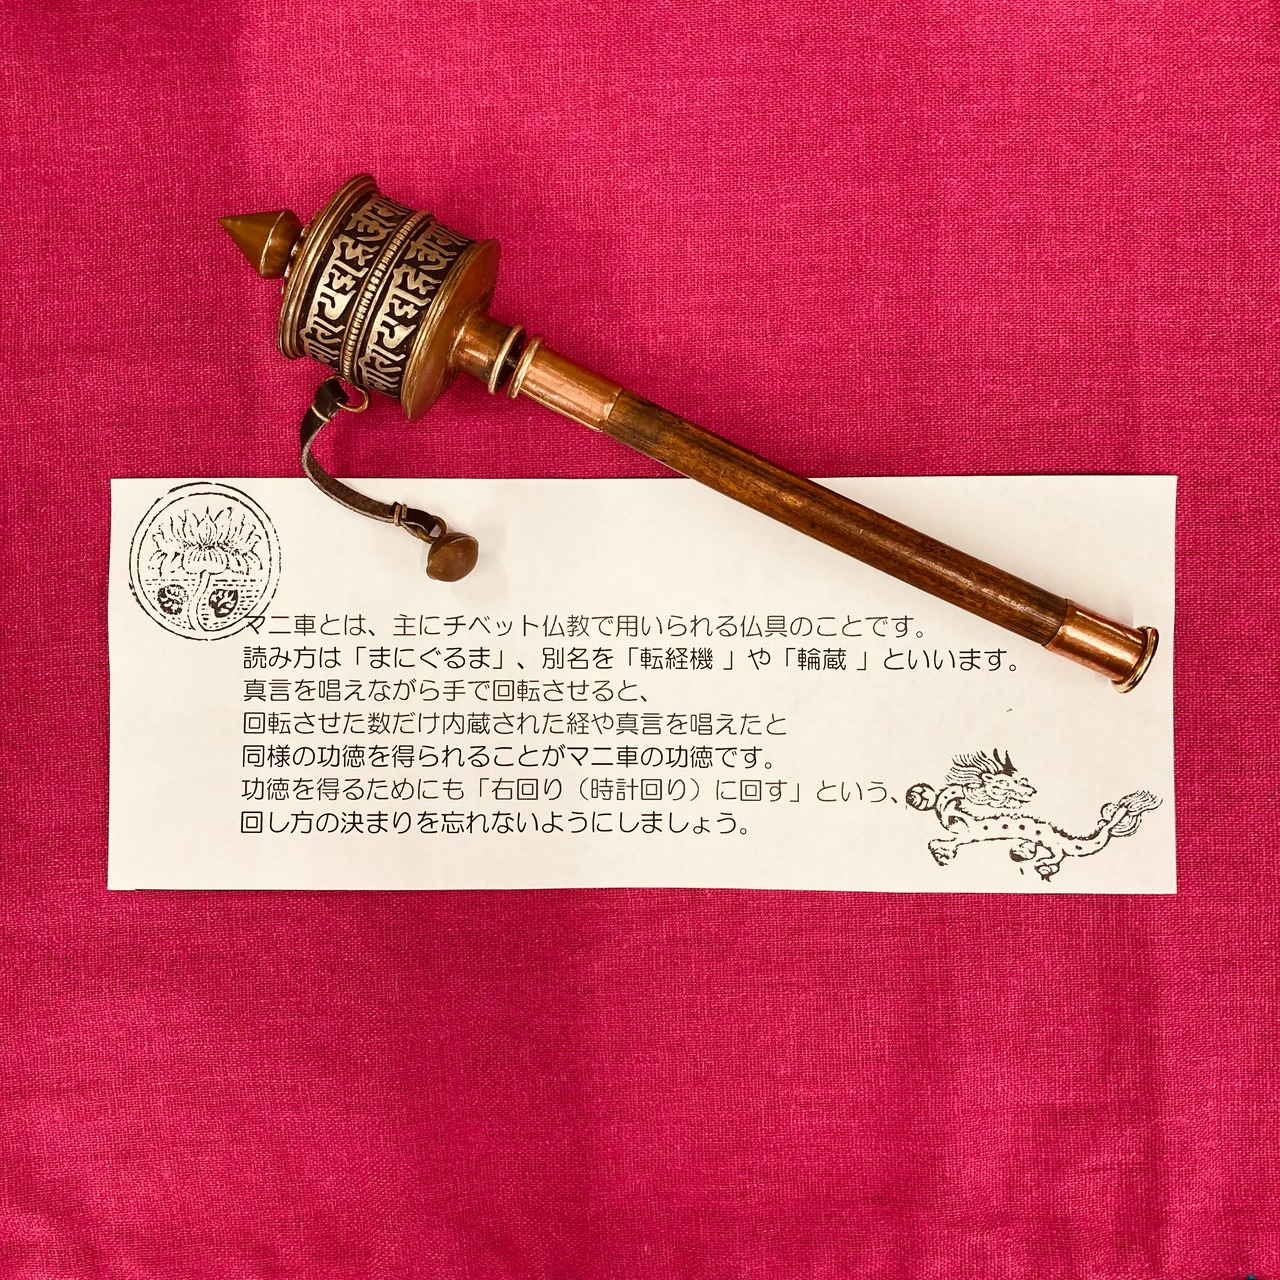 マニ車とは、主にチベット仏教で用いられる仏具のことです。
読み方は「まにぐるま」、別名を「転経機 」や「輪蔵 」といいます。
真言を唱えながら手で回転させると、
回転させた数だけ内蔵された経や真言を唱えたと
同様の功徳を得られることがマニ車の功徳です。
功徳を得るためにも「右回り（時計回り）に回す」という、
回し方の決まりを忘れないようにしましょう。